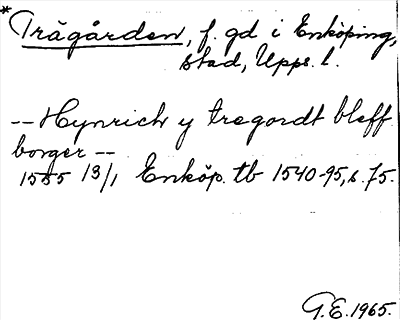 * Trägården, f. gd i Enköping,
stad, Upps. l.
-- Hynrich y tregordt bleff
borger --
1555 13/1 Enköp. tb 1540-95, s. 75.
G.E. 1965.